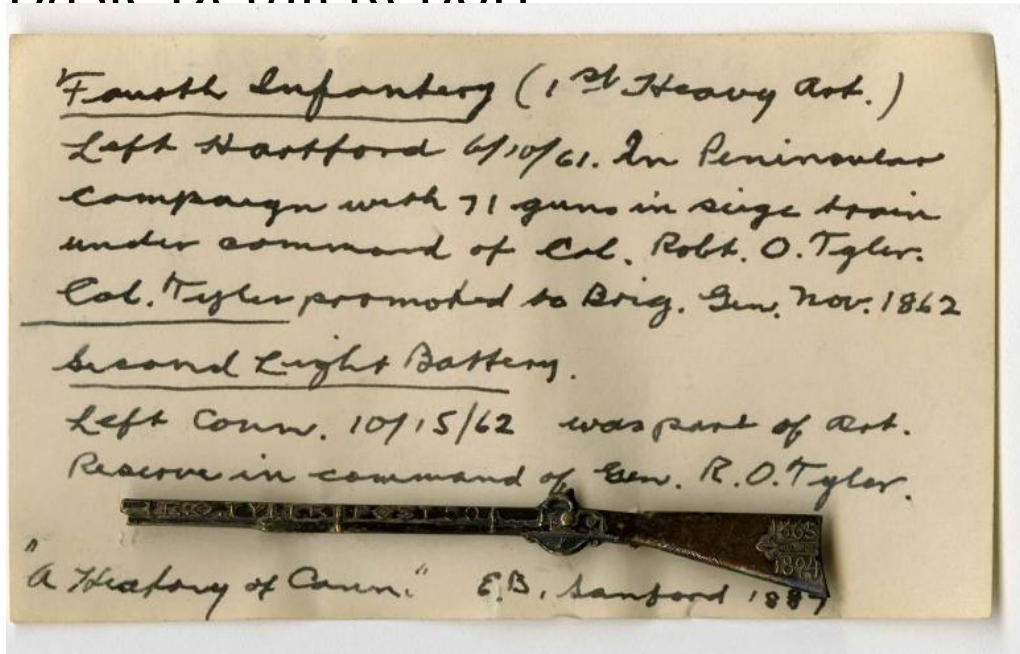 Fourth Infantry (1st Heavy Art.)
Left Hartford 6/10/61. In Peninsular
campaign with 71 guns in seige train
under command of Col. Robt. O. Tyler.
Col. Tyler promoted to Brig. Gen. Nov. 1862
Second Light Battery.
Left Conn. 10/15/62 was part of Art.
Reserve in command of Gen. R. O. Tyler.
1865
1894
"A History of Conn." E.B. Sanford 1887